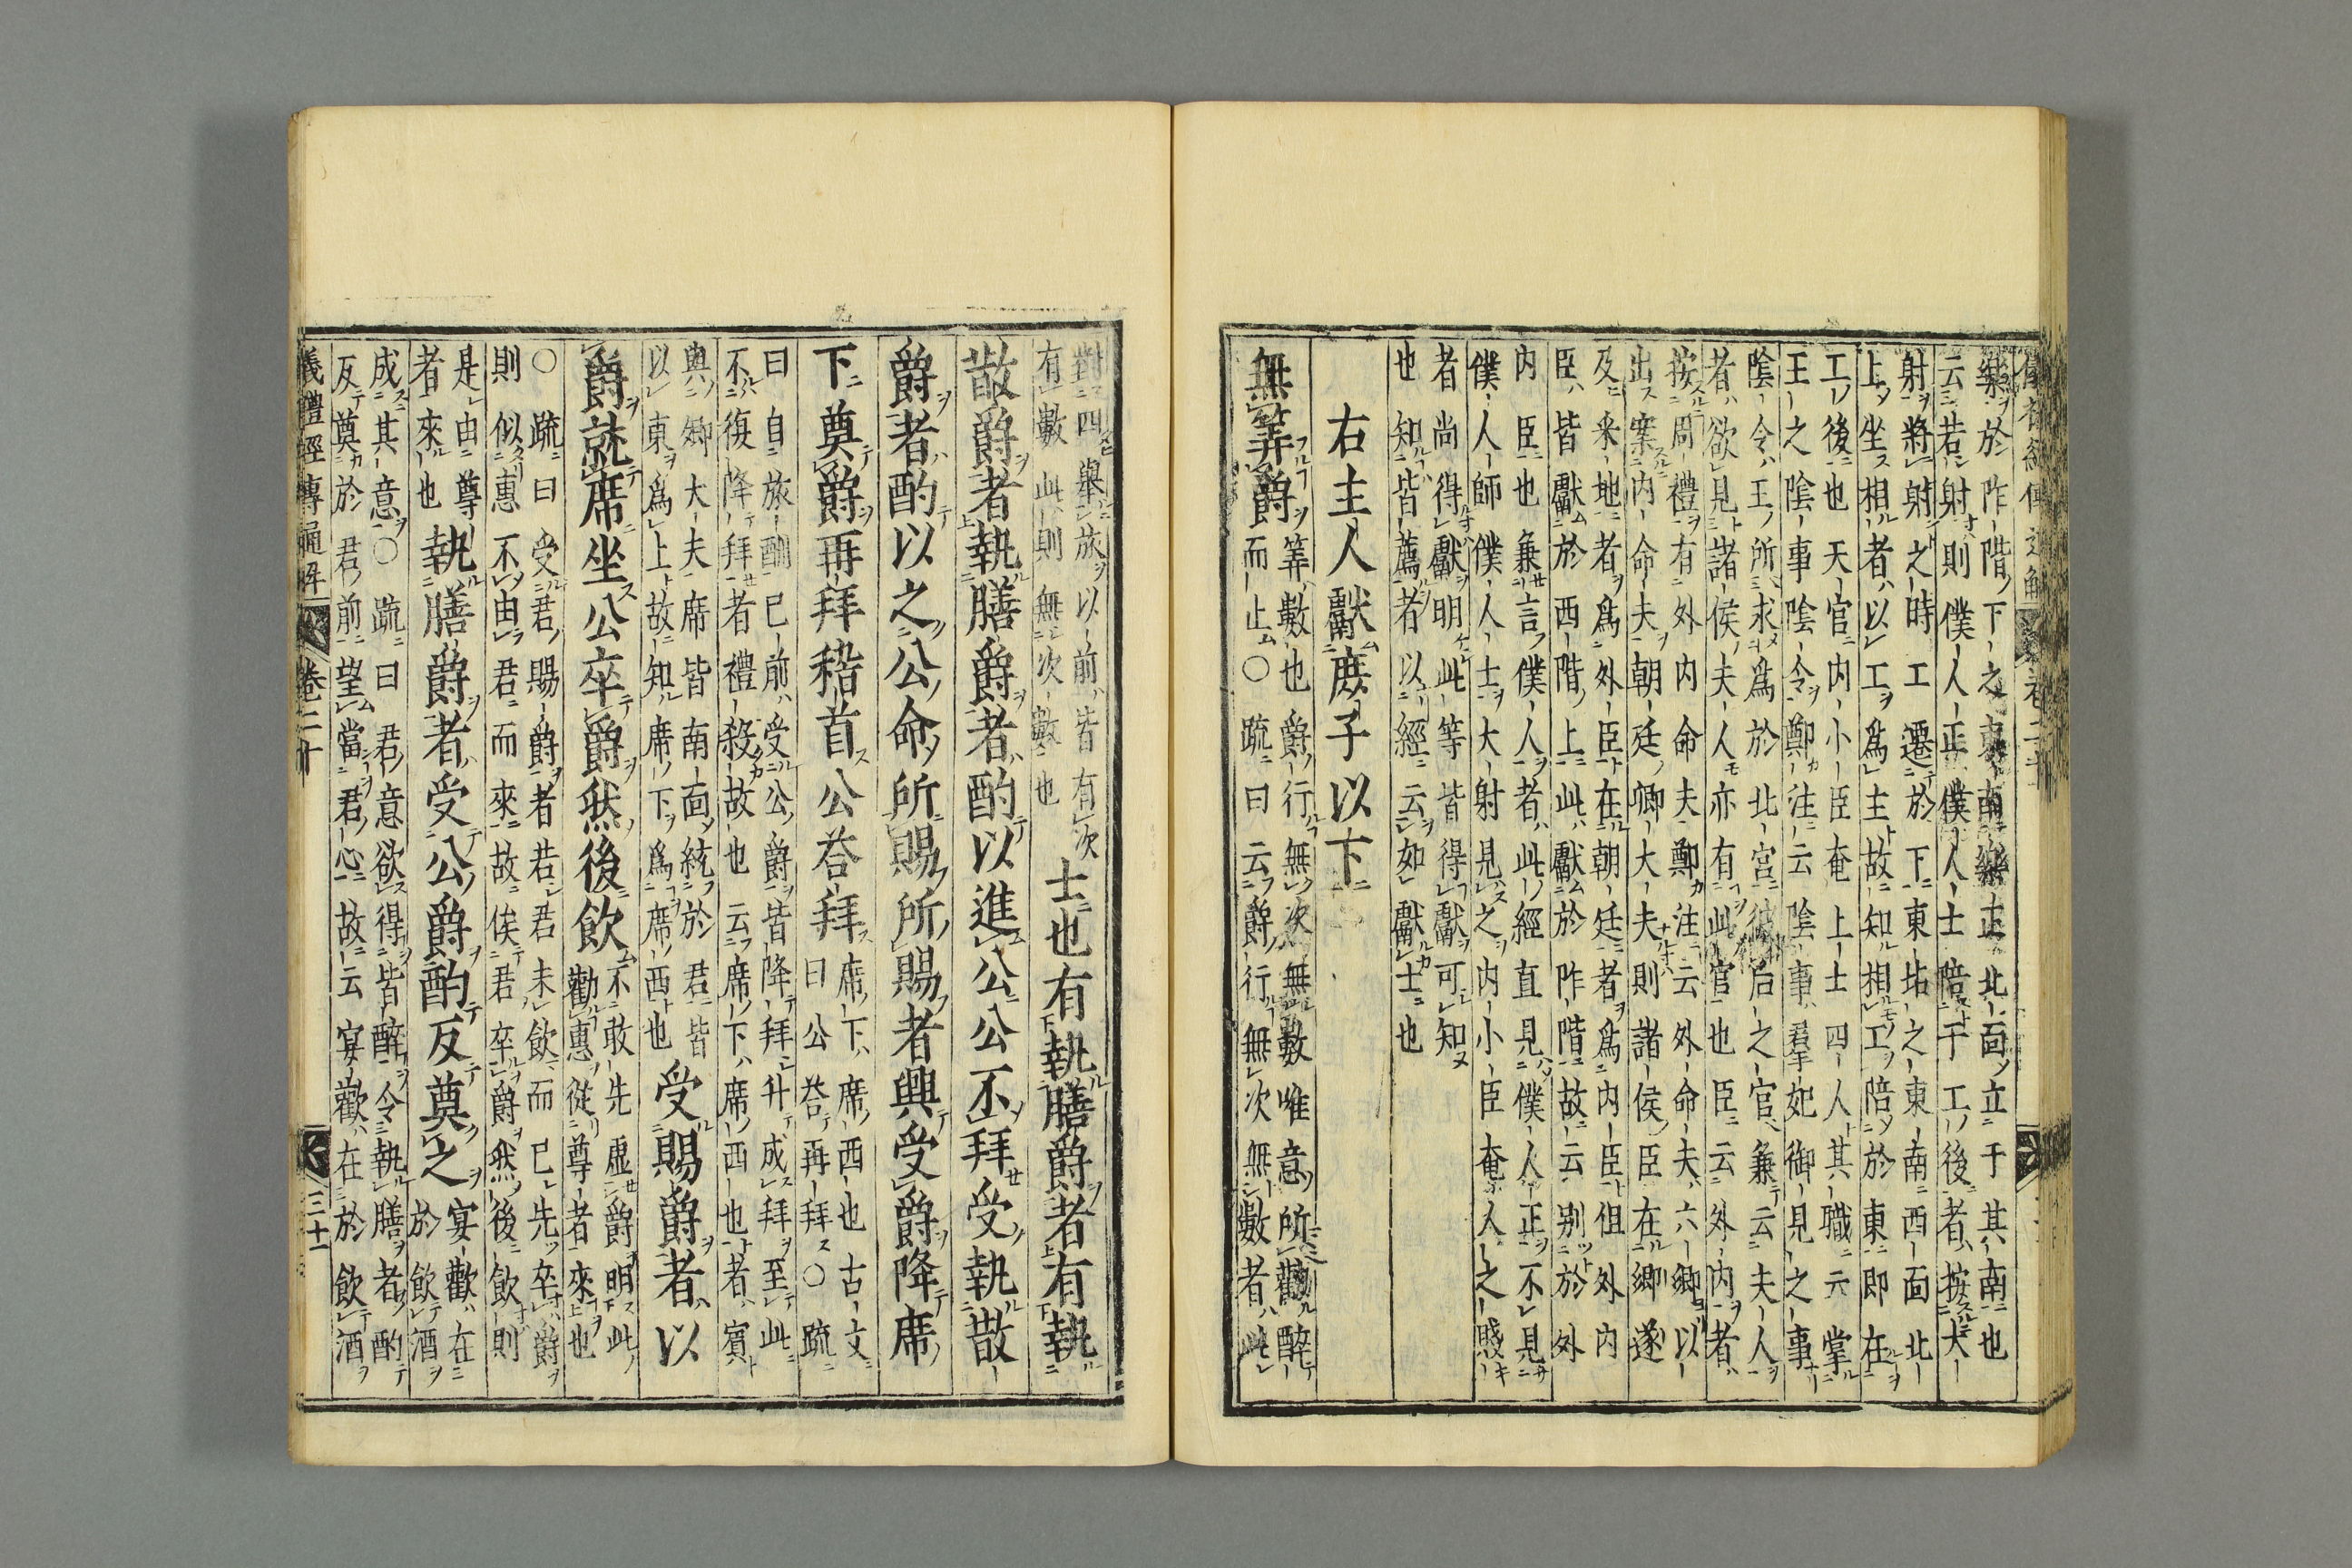 樂於阼階下之東南樂正北面立于其南也
云若射則僕人正僕人士陪于工後者按大
射將射之時工遷於下東坫之東南西面北
上坐相者以工爲主故知相工陪於東即在
工後也天官内小臣奄上士四人其職云掌
王之陰事陰令鄭注云陰事羣妃御見之事
陰令王所求爲於北宮彼后之官兼云夫人
者欲見諸侯夫人亦有此官也臣云外内者
按周禮有外内命夫鄭注云外命夫六卿以
出案内命夫朝廷卿大夫則諸侯臣在鄉遂
及采地者爲外臣在朝廷者爲内臣但外内
臣皆獻於西階上此獻於阼階故云别於外
内臣也兼言僕人者此經直見僕人正不見
僕人師僕人士大射見之内小臣奄人之賤
者尚得獻明此等皆得獻可知
也知皆薦者以經云如獻士也
右主人獻庶子以下
無筭爵筭數也爵行無次無數唯意所勸醉
而止〇疏曰云爵行無次無數者此
對四舉旅以前皆有次
有數此則無次數也
士也有執膳爵者有執
散爵者執膳爵者酌以進公公不拜受執散
爵者酌以之公命所賜所賜者興受爵降席
下奠爵再拜稽首公荅拜
席下席西也古文
曰公荅再拜〇疏
曰自旅酬已前受公爵皆降拜升成拜至此
不復降拜者禮殺故也云席下席西也者賓
與卿大夫席皆南面統於君皆
以東爲上故知席下爲席西也
受賜爵者以
爵就席坐公卒爵然後飲
不敢先虛爵明此
勸惠從尊者來也
〇疏曰受君賜爵者若君未飲而已先卒爵
則似惠不由君而來故俟君卒爵然後飲則
是由尊
者來也
執膳爵者受公爵酌反奠之
宴歡在
於飲酒
成其意〇疏曰君意欲得皆醉令執膳者酌
反奠於君前望當君心故云宴歡在於飲酒
儀禮經傳通解
卷二十
三十一